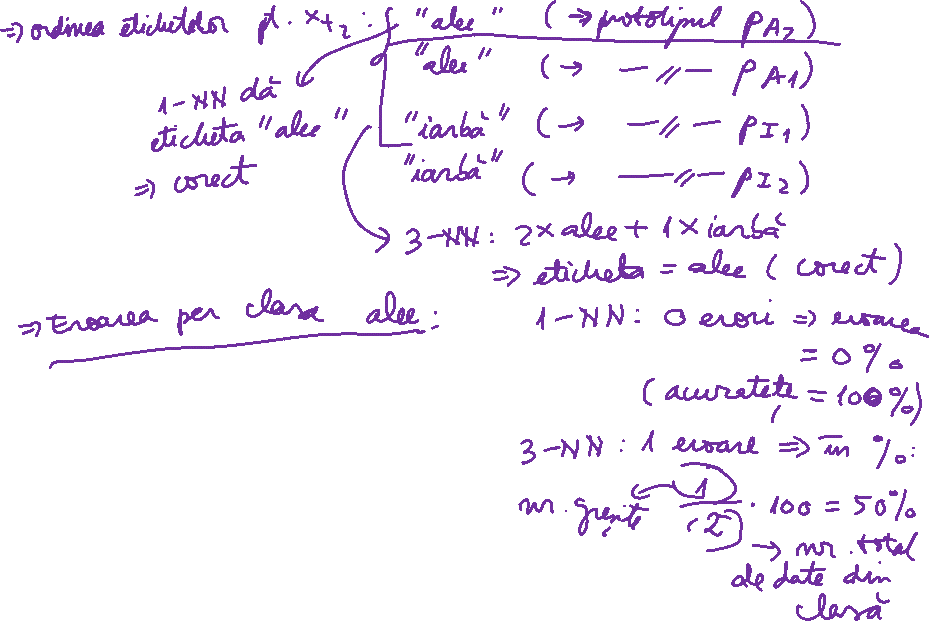 ⇒ ordinea etichetelor pt. x_{t_2}: "alee" (→ prototipul p_{A_2})
"alee" (→ —//— p_{A1})
1-NN dă
eticheta "alee"
⇒ corect
"iarbă" (→ —//— p_{I_1})
"iarbă" (→ —//— p_{I_2})
3-NN: 2×alee + 1×iarbă
⇒ eticheta = alee (corect)
⇒ Eroarea per clasa alee:
1-NN: 0 erori ⇒ eroarea
= 0%
(acuratețe = 100%)
3-NN: 1 eroare ⇒ în %:
nr. greșite 1/(2) · 100 = 50%
→ nr. total
de date din
clasă